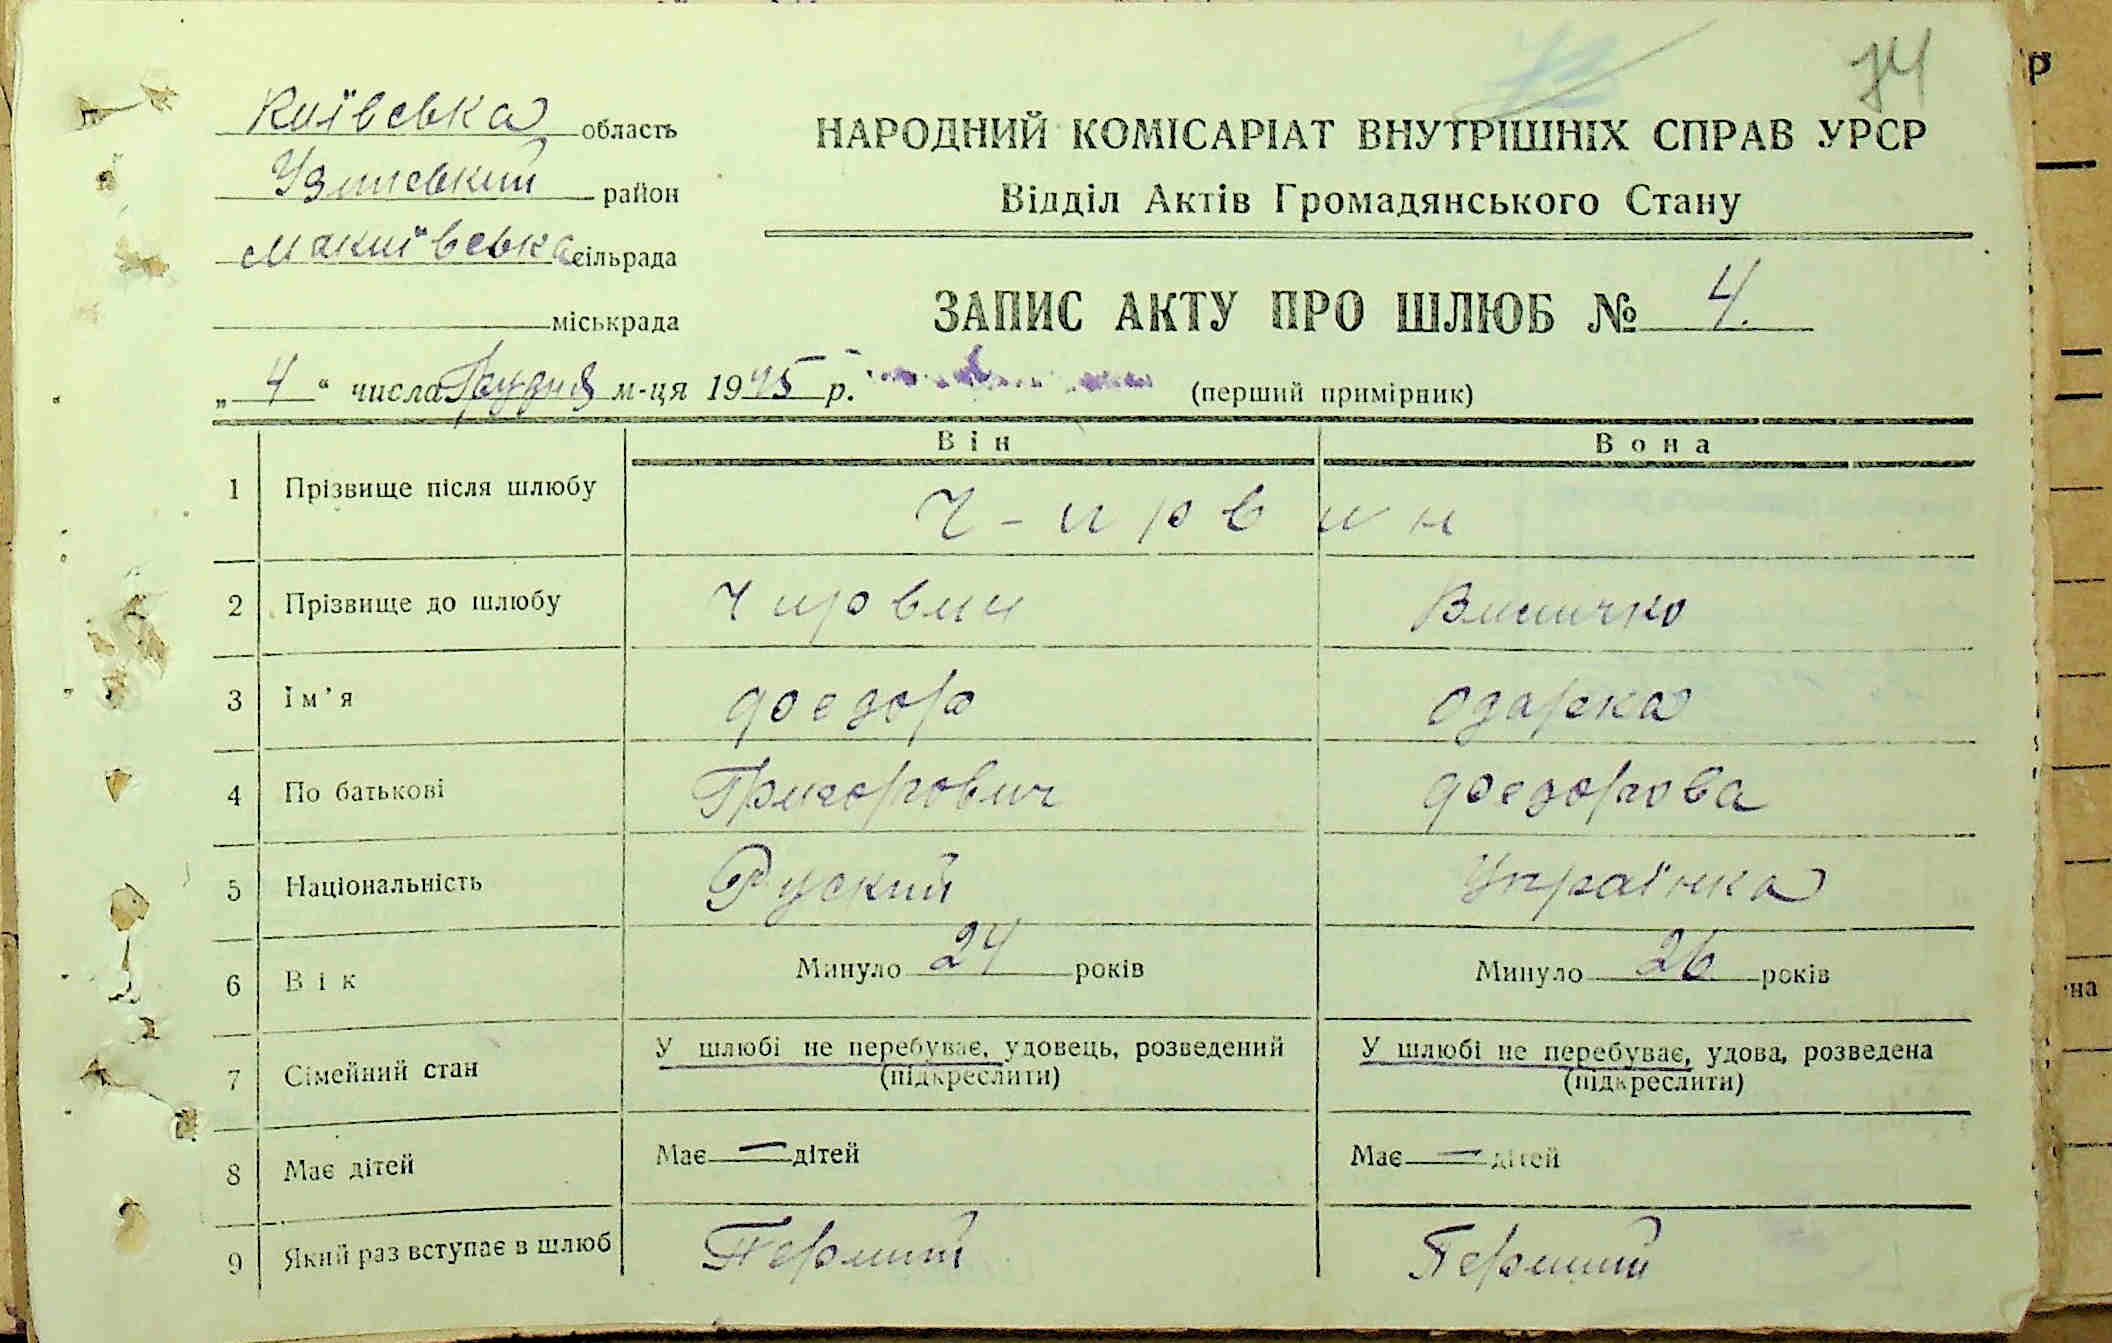 74
Київська область
Узинський район
Макиївська сільрада
міськрада
НАРОДНИЙ КОМІСАРІАТ ВНУТРІШНІХ СПРАВ УРСР
Відділ Актів Громадянського Стану
ЗАПИС АКТУ ПРО ШЛЮБ № 4.
„ 4 “ числа Грудня м-ця 1945 р. (перший примірник)
Він Вона
1 Прізвище після шлюбу Ч-ирвин
2 Прізвище до шлюбу Чирвин
3 Ім'я Фоедор Одарка
4 По батькові Григорович Фоедорова
5 Національність Руский Українка
6 Вік Минуло 24 років Минуло 26 років
7 Сімейний стан У шлюбі не перебуває, удовець, розведений У шлюбі не перебуває, удова, розведена
(підкреслити) (підкреслити)
8 Має дітей Має — дітей Має — дітей
9 Який раз вступає в шлюб Перший Перший